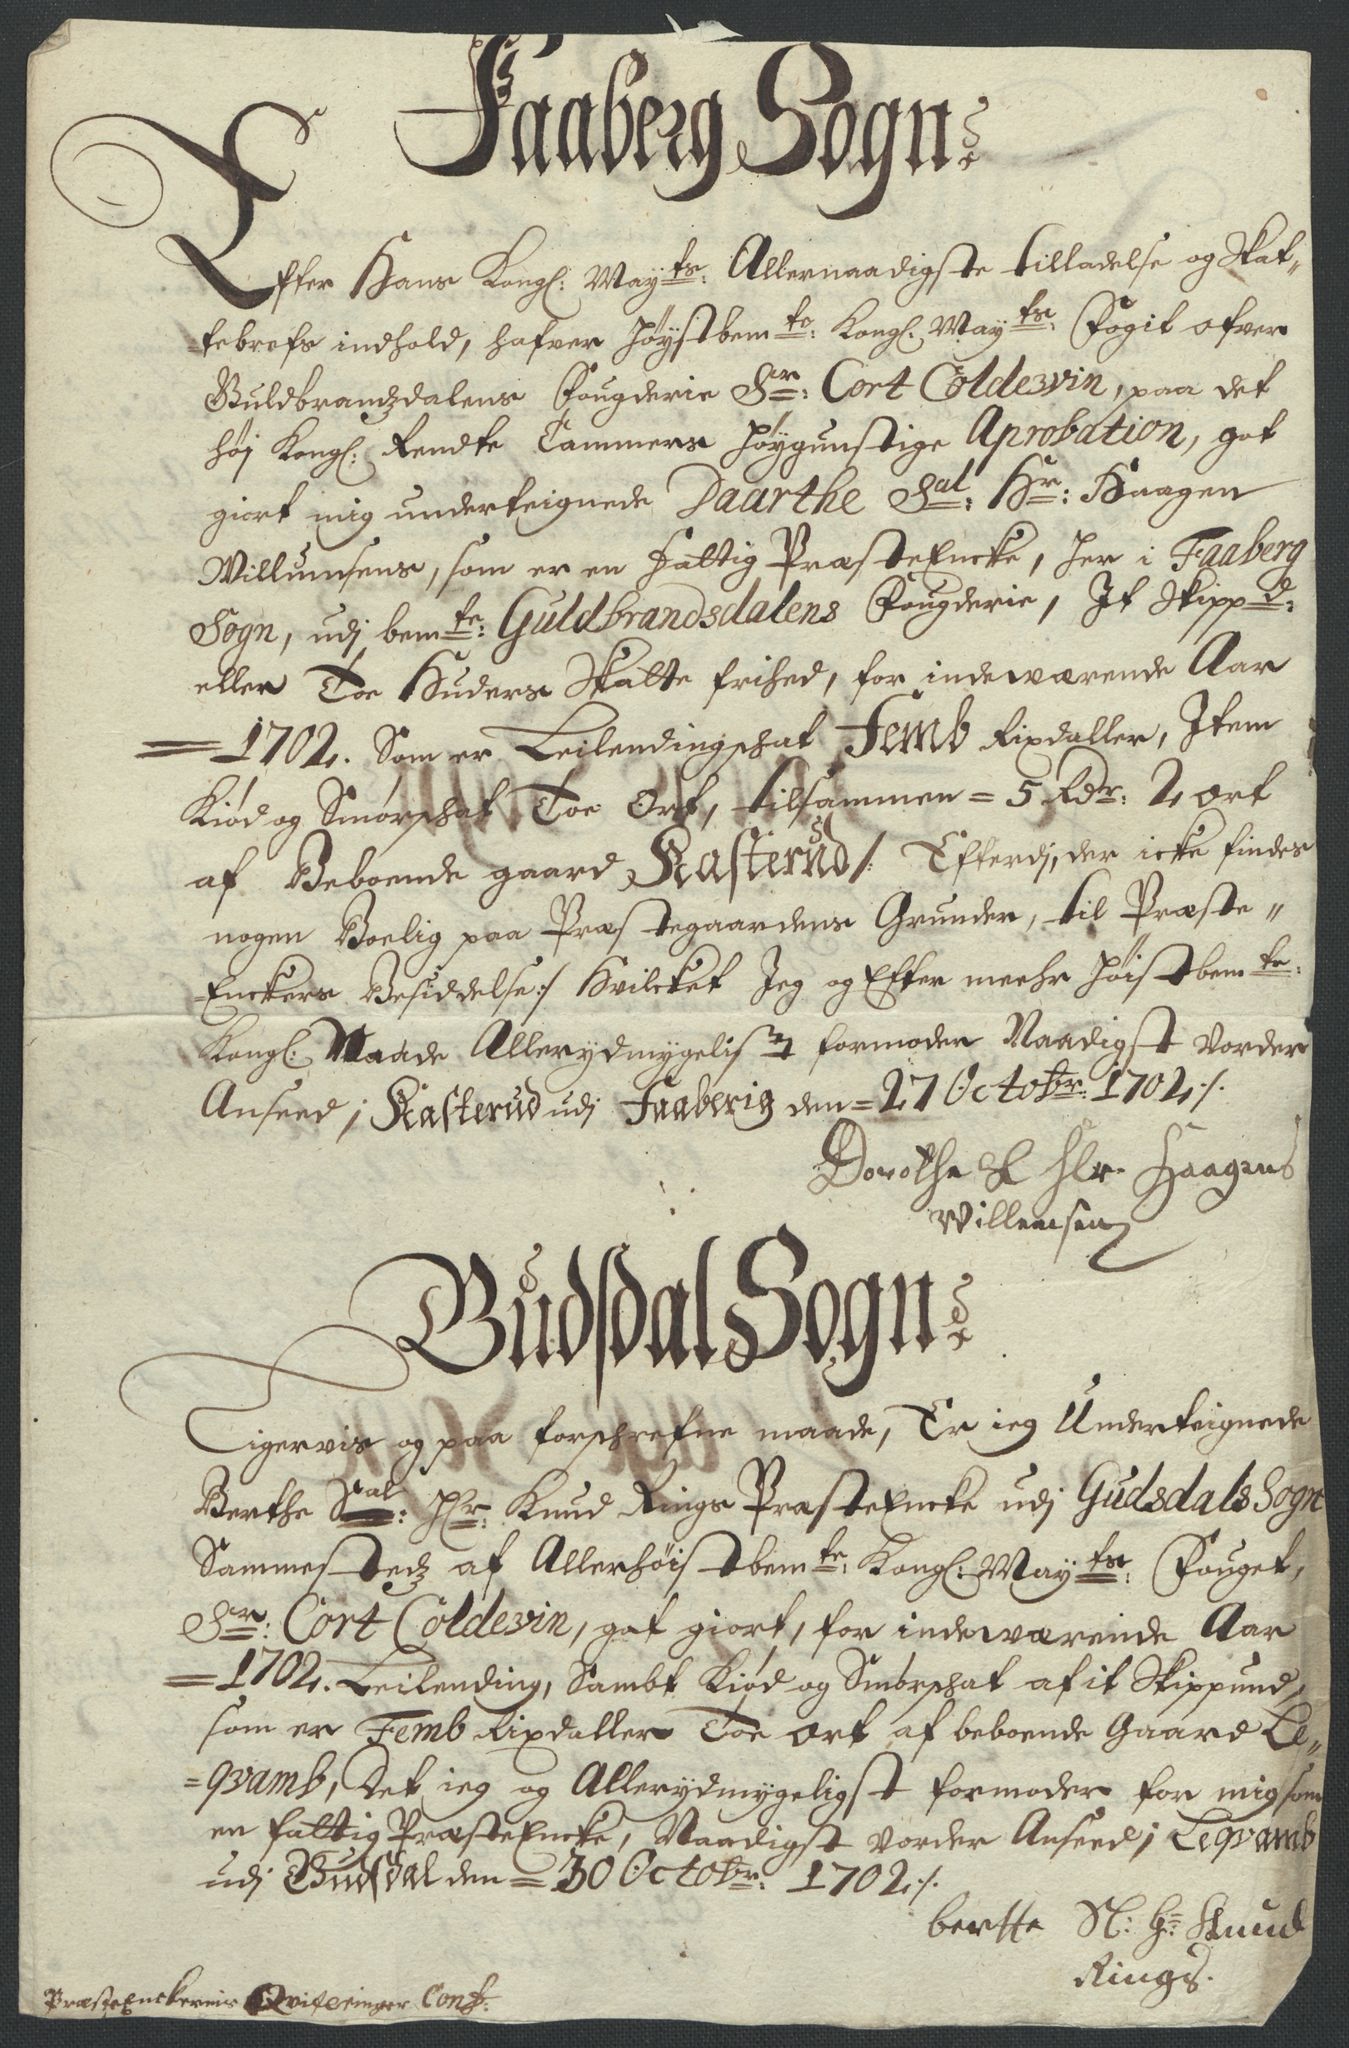 Faaberg Sogn:
Efter Hans Kongl: May:ts: Allernaadigste tilladelse og Skat-
tebrefs indhold, hafver Høystbem:te: Kongl: May:ts: Fogit ofver
Guldbrandzdalens Fougderie S:r: Cort Coldevin, paa det
høj Kongl: Rendte Cammers Høygunstige Aprobation, got
giort mig underteignede Daarthe Sal: Hr: Haagen
Willumsens, som er en fattig PræsteEncke, her i Faaberg
Sogn, udj bem:te: Guldbrandsdalens Fougderie, It Skipp:d:
eller Toe Huders Skatte frihed, for indeværende Aar
= 1702. Som er Leilendingschat Femb Rixdaller, Item
Kiød og Smørschat Toe Ort, tilsammen = 5 Rdr: 2 ort
af Beboende gaard Kasterud /: Efterdj, der icke findes
nogen Boelig paa Præstegaardens Grunder, til Præste-
Enckers Besiddelse :/ Hvilcket Jeg og Efter meehr Høistbem:te:
Kongl: Naade Allerydmygeligst formoder Naadigst Vorder
Anseed, Kasterud udj Faaberig den = 27 Octobr: 1702 ./.
Dorothe S Hr. Haagens
Willemsen
Gudsdal Sogn:
Ligervis og paa forschrefne maade, Er ieg Underteignede
Berthe Sal: Hr: Knud Rings PræsteEncke udj Gudsdals Sogn
Sammestedz af Allerhøistbem:te: Kongl: May:ts: Fouget,
S:r: Cort Coldevin, got giort, for indeværende Aar
= 1702. Leilending, Sambt Kiød og Smørschat af it Skippund,
som er Femb Rixdaller Toe ort af beboende Gaard Le-
=qvamb, Det ieg og Allerydmygeligst formoder for mig som
en fattig PræsteEncke, Naadigst Vorder Anseed, Leqvamb
udj Gudsdal den = 30 Octobr: 1702 ./.
bertte Sl: Hr: Knud
Rings.
PræsteEnckernis Qviteringer Conf: